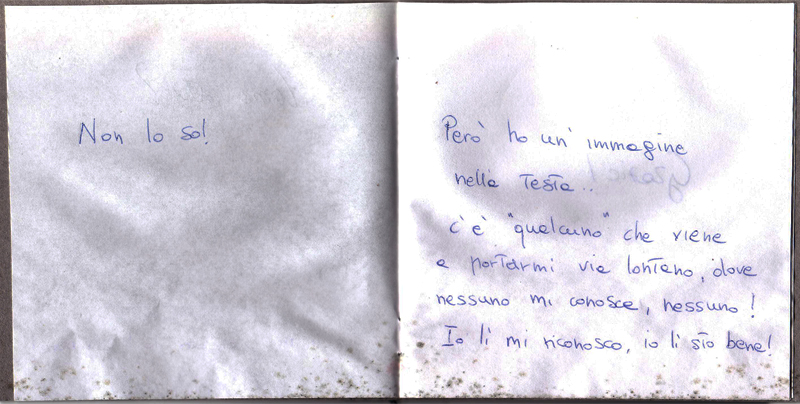 Non lo so!
Però ho un' immagine
nella testa..
c'è "qualcuno" che viene
a portarmi via lontano, dove
nessuno mi conosce, nessuno!
Io lì mi riconosco, io lì sto bene!